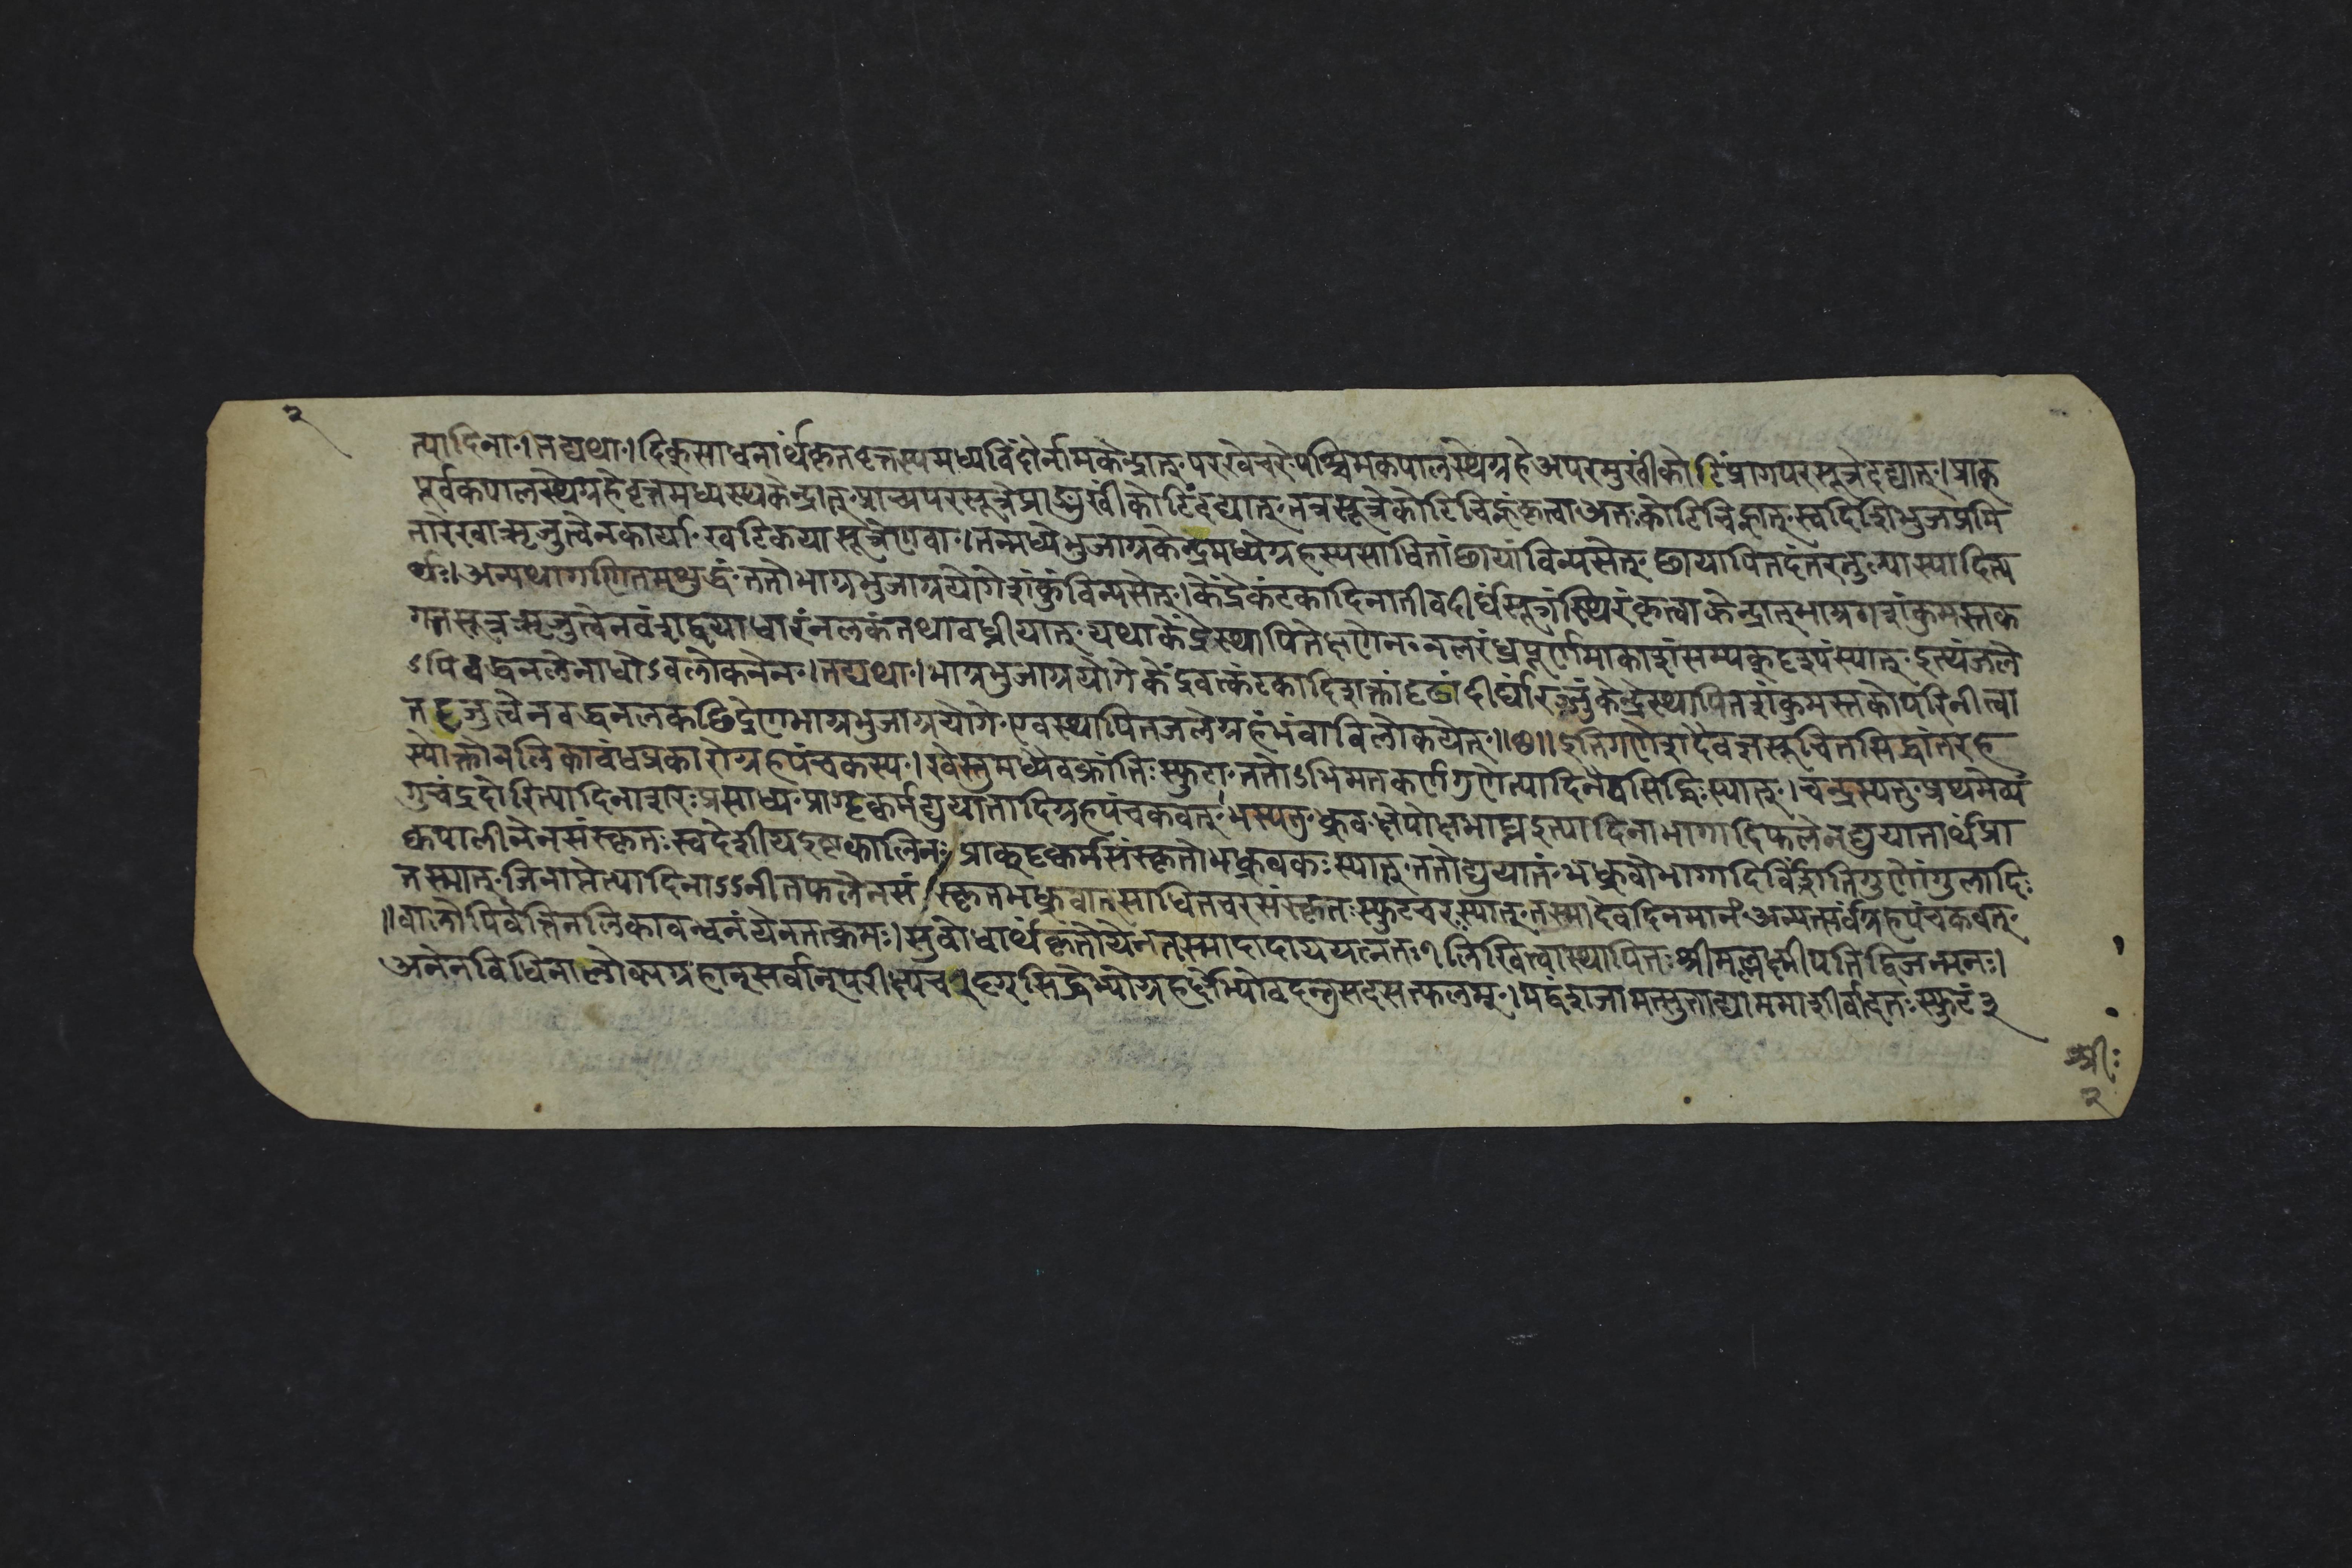 २
त्यादिना।तद्यथा।दिक्साधनार्थंकृतवृत्तस्यमध्यविंदोर्नामकेन्द्रात्परखेचरेपश्चिमकपालस्थेग्रहेअपरमुखींकोटिंप्रागपरसूत्रेदद्यात्।प्राक्
पूर्वकपालस्थेग्रहेवृत्तमध्यस्थकेन्द्रात्प्राच्यपरसूत्रेप्राङ्मुखींकोटिंदद्यात्तत्रसूत्रेकोटिचिह्नंकृत्वाअतःकोटिचिह्नात्स्वदिशिभुजप्रमि
तारेखाऋजुत्वेनकार्याखटिकयासूत्रेणवा।तन्मध्येभुजाग्रकेन्द्रमध्येग्रहस्यसाधितांछायांविन्यसेत्छायापितदंतरतुल्यास्यादित्य
र्थः।अन्यथागणितमशुद्धंततोभाग्रभुजाग्रयोगेशंकुंविन्यसेत्।केंद्रेकंटकादिनातीवदीर्घंसूत्रंस्थिरंकृत्वाकेन्द्रात्भाग्रगशंकुमस्तक
गतसूत्रऋजुत्वेनवंशद्वयाधारंनलकंतथाबध्नीयात्यथाकेंद्रेस्थापितेक्षणेननलरंध्रपूर्णमाकाशंसम्यक्दृश्यंस्यात्इत्थंजले
ऽपिबद्धनलेनाधोऽवलोकनेन।तद्यथा।भाग्रभुजाग्रयोगेकेंद्रवत्कंटकादिशक्तांदृढांदीर्घांरज्जुंकेन्द्रेस्थापितशंकुमस्तकोपरिनीत्वा
तदृजुत्वेनबद्धनलकछिद्रेणभाग्रभुजाग्रयोगेएवस्थापितजलेग्रहंभंवाविलोकयेत्॥छ॥इतिगणेशदैवज्ञसूचितसिद्धांतरह
स्योक्तोनलिकाबंधप्रकारोग्रहपंचकस्य।रवेस्तुमध्येवक्रांतिःस्फुटाततोऽभिमतकर्णगुणेत्यादिनैवसिद्धिःस्यात्।चन्द्रस्यतुप्रथमेव्यं
गुचंद्रदोरित्यादिनाशरःप्रसाध्यप्राग्दृक्कर्मद्युयातादिग्रहपंचकवत्भस्यतुध्रुवक्षेपोक्षभाघ्नइत्यादिनाभागादिफलेनद्युयातार्थंप्रा
क्कपालीनेनसंस्कृतःस्वदेशीयइष्टकालिनःप्राक्दृक्कर्मसंस्कृतोभध्रुवकःस्यात्ततोद्युयातंभध्रुवोभागादिर्विंशतिगुणोंगुलादिः
तस्मात्जिनाप्तेत्यादिनाऽऽनीतफलेनसंस्कृतभध्रुवात्साधितचरसंस्कृतःस्फुटचरःस्यात्तस्मादेवदिनमानंअन्यत्सर्वंग्रहपंचकवत्
॥बालोपिवेत्तिनलिकाबन्धनंयेनतत्क्रमः।सुबोधार्थंकृतोयेनतस्मादादाययत्नतः१लिखित्वास्थापितःश्रीमल्लक्ष्मीपतिद्विजन्मनः।
अनेनविधिनालोक्यग्रहान्सर्वान्परीक्ष्यच२दृग्सिद्धेभ्योग्रहेभ्योवदन्तुसदसत्फलम्।मद्वंशजामत्सुताद्याममाशीर्वादतःस्फुटं३
श्रीः
२